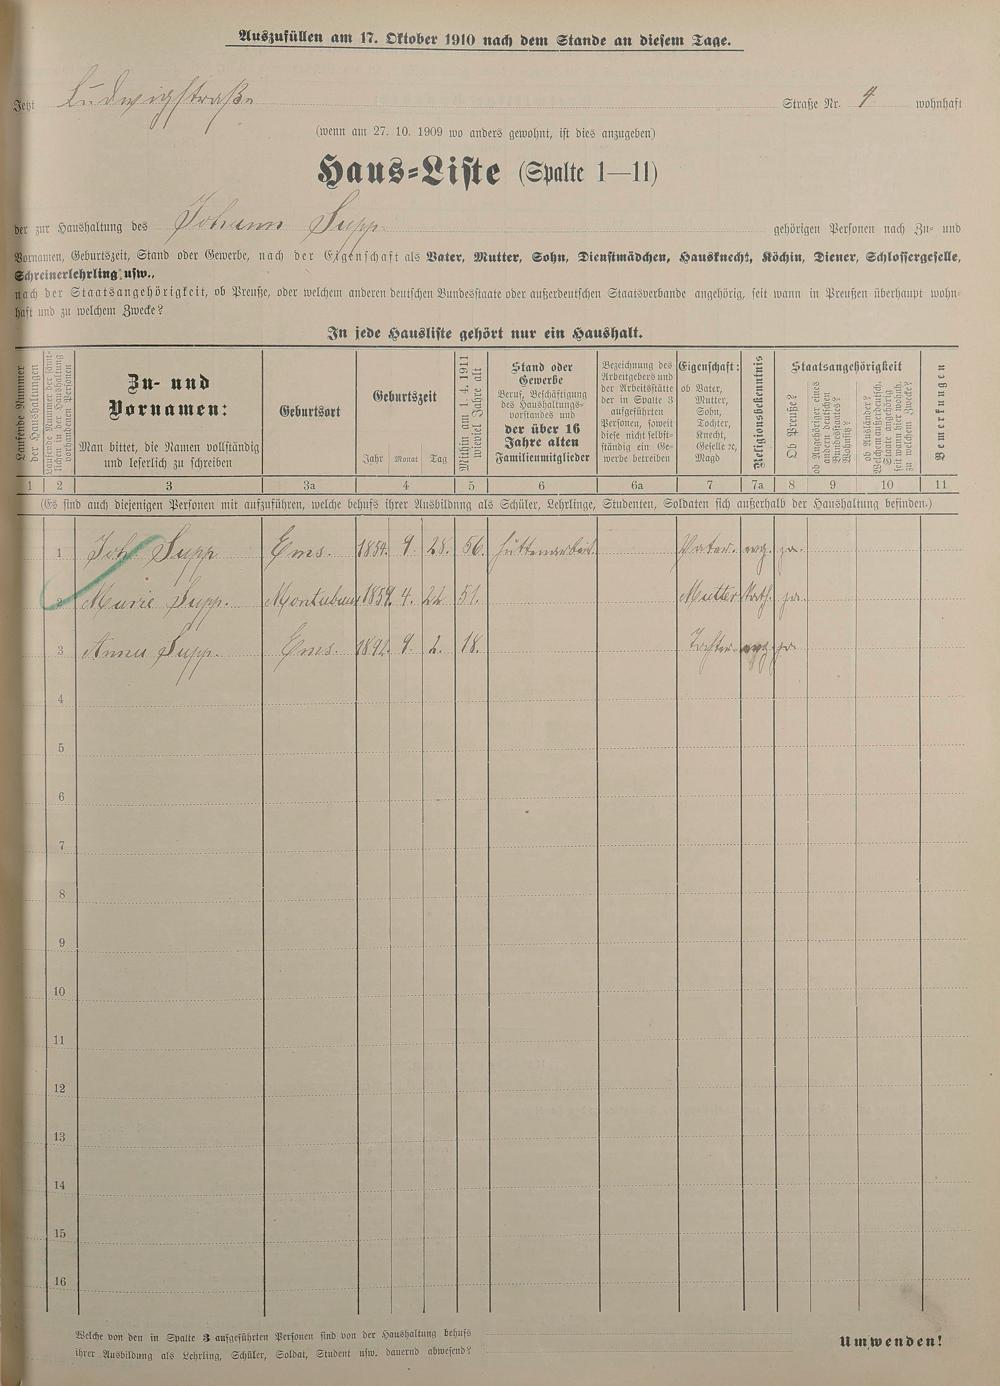 Auszufüllen am 17. Oktober 1910 nach dem Stande an diesem Tage.
Jetzt Ludwigstraße Straße Nr. 4 wohnhaft
(wenn am 27. 10. 1909 wo anders gewohnt, ist dies anzugeben)
Haus-Liste (Spalte 1—11)
der zur Haushaltung des Johann Supp. gehörigen Personen nach Zu- und
Vornamen, Geburtszeit, Stand oder Gewerbe, nach der Eigenschaft als Vater, Mutter, Sohn, Dienstmädchen, Hausknecht, Köchin, Diener, Schlossergeselle,
Schreinerlehrling usw.,
nach der Staatsangehörigkeit, ob Preuße, oder welchem anderen deutschen Bundesstaate oder außerdeutschen Staatsverbande angehörig, seit wann in Preußen überhaupt wohn-
haft und zu welchem Zwecke?
In jede Hausliste gehört nur ein Haushalt.
Laufende Nummer
der Haushaltungen
Laufende Nummer der sämt-
lichen in der Haushaltung
vorhandenen Personen
Zu- und
Vornamen:
Man bittet, die Namen vollständig
und leserlich zu schreiben
Geburtsort
Geburtszeit
Jahr Monat Tag
Mithin am 1. 4. 1911
wieviel Jahre alt
Stand oder
Gewerbe
Beruf, Beschäftigung
des Haushaltungs-
vorstandes und
der über 16
Jahre alten
Familienmitglieder
Bezeichnung des
Arbeitgebers und
der Arbeitsstätte
der in Spalte 3
aufgeführten
Personen, soweit
diese nicht selbst-
ständig ein Ge-
werbe betreiben
Eigenschaft:
ob Vater,
Mutter,
Sohn,
Tochter,
Knecht,
Geselle ꝛc,
Magd
Religionsbekenntnis
Staatsangehörigkeit
Ob Preuße?
ob Angehöriger eines
andern deutschen
Bundesstaates?
Wohnsitz?
ob Ausländer?
Welchem außerdeutsch.
Staate angehörig
seit wann hier wohnh.
zu welchem Zwecke?
Bemerkungen
1 2 3 3a 4 5 6 6a 7 7a 8 9 10 11
(Es sind auch diejenigen Personen mit aufzuführen, welche behufs ihrer Ausbildung als Schüler, Lehrlinge, Studenten, Soldaten sich außerhalb der Haushaltung befinden.)
1 Joh. Supp Ems. 1854. 9. 28. 56. Hüttenarbeit. Vater. evg. ja.
2 Marie Supp. Montabaur 1859. 4. 22 51. Mutter Kath. ja.
3 Anna Supp. Ems. 1892. 9. 2. 18. Tochter evg. ja
4
5
6
7
8
9
10
11
12
13
14
15
16
Welche von den in Spalte 3 aufgeführten Personen sind von der Haushaltung behufs
ihrer Ausbildung als Lehrling, Schüler, Soldat, Student usw. dauernd abwesend?
Umwenden!